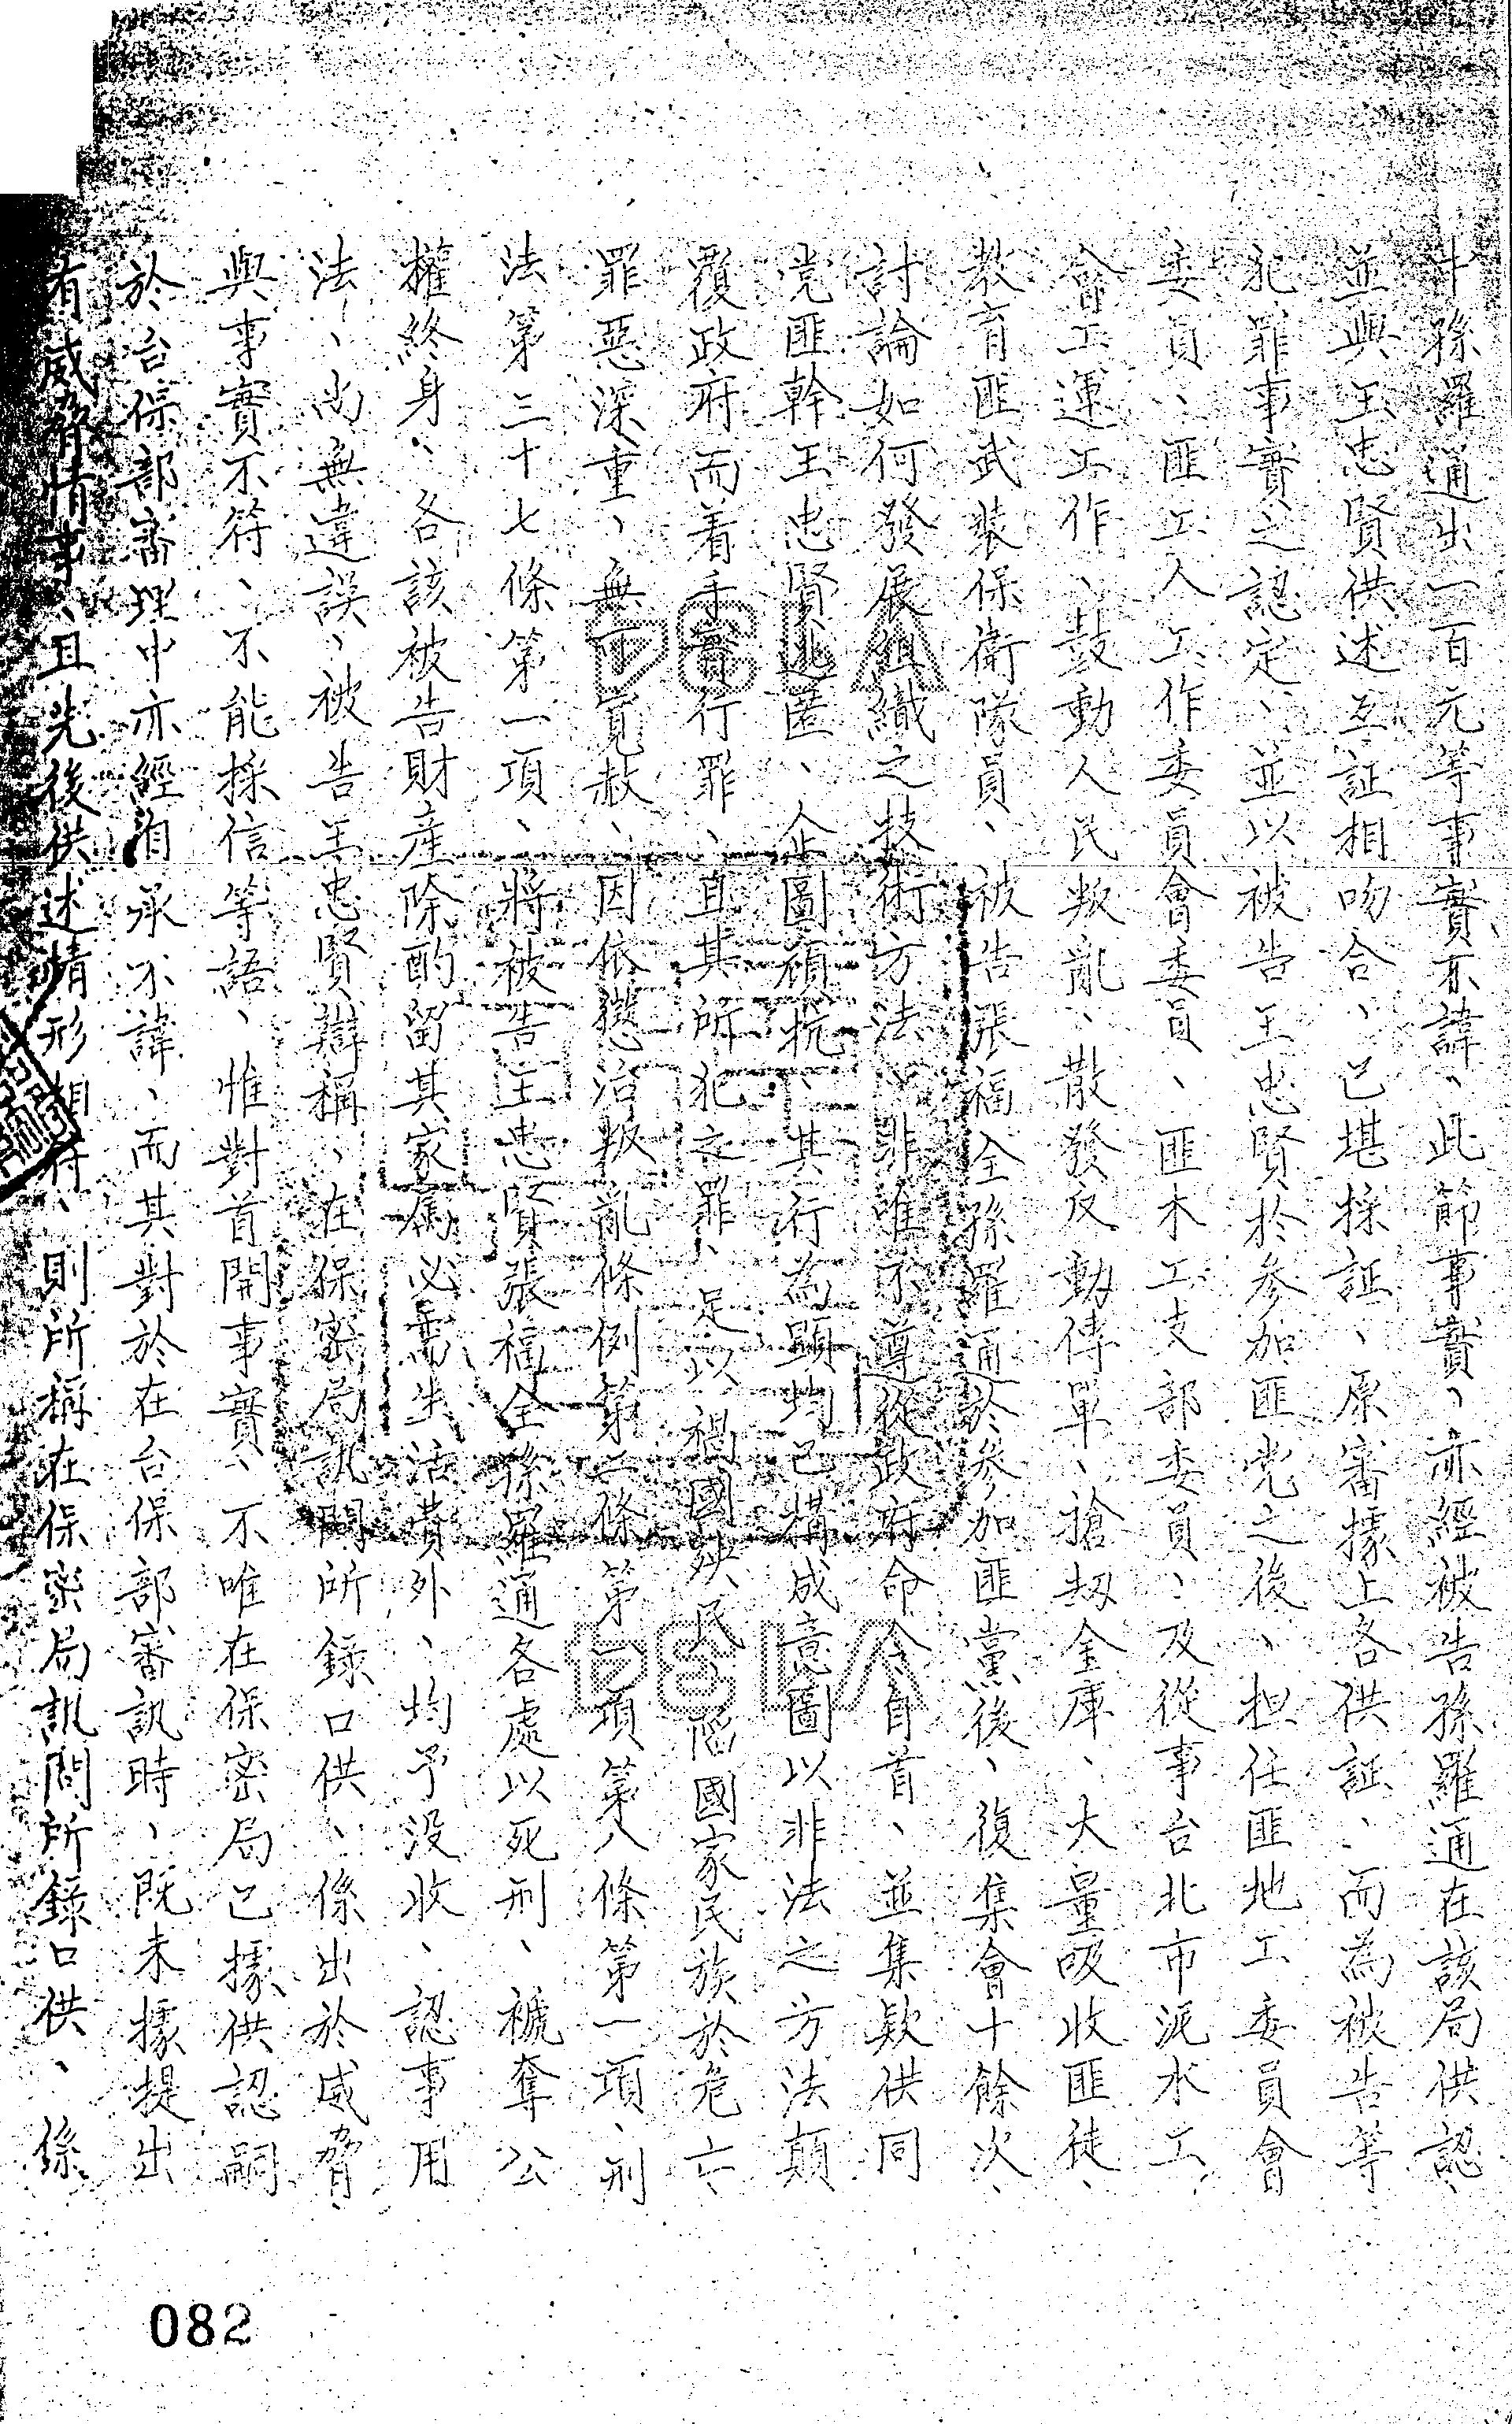 孫羅通出一百元等事實不諱、此節事實、亦經被告孫羅通在該局供認、
並與王忠賢供述互証相吻合、已堪採証、原審據上各供証、而為被告等
犯罪事實之認定、並以被告王忠賢於参加匪党之後、担任匪地工委員會
委員、匪工人工作委員會委員、匪木工支部委員、及從事台北市泥水工、
會工運工作、鼓動人民叛亂、散發反動傳單、搶刼金庫、大量吸收匪徒、
教育匪武裝保衛隊員、被告張福全孫羅通於参加匪黨後、復集會十餘次、
討論如何發展組織之技術方法、非唯不遵從政府命令自首、並集欵供同
党匪幹王忠賢逃匿、企圖頑抗、其行為顯均已構成意圖以非法之方法顛
覆政府而着手實行罪、且其所犯之罪、足以禍國殃民、陷國家民族於危亡、
罪惡深重、無可寬赦、因依懲治叛亂條例第二條第一項第八條第一項、刑
法第三十七條第一項、將被告王忠賢張福全孫羅通各處以死刑、褫奪公
權終身、各該被告財產除酌留其家屬必需生活費外、均予没收、認事用
法、尚無違誤、被告王忠賢辯稱、在保密局訊問所錄口供、係出於威脅、
與事實不符、不能採信等語、惟對首開事實、不唯在保密局已據供認嗣
於台保部審理中亦經自承不諱、而其對於在台保部審訊時、既未據提出
有威脅情事、且先後供述情形相符、則所稱在保密局訊問所錄口供、係
082